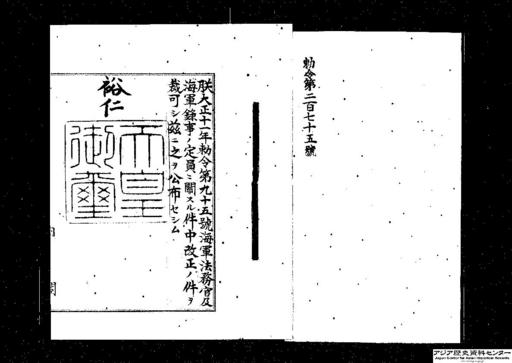 勅令第二百七十五號
朕大正十一年勅令第九十五號海軍法務官及
海軍錄事ノ定員ニ關スル件中改正ノ件ヲ
裁可シ茲ニ之ヲ公布セシム
裕仁
天皇
御璽
アジア歴史資料センター
Japan Center for Asian Historical Records